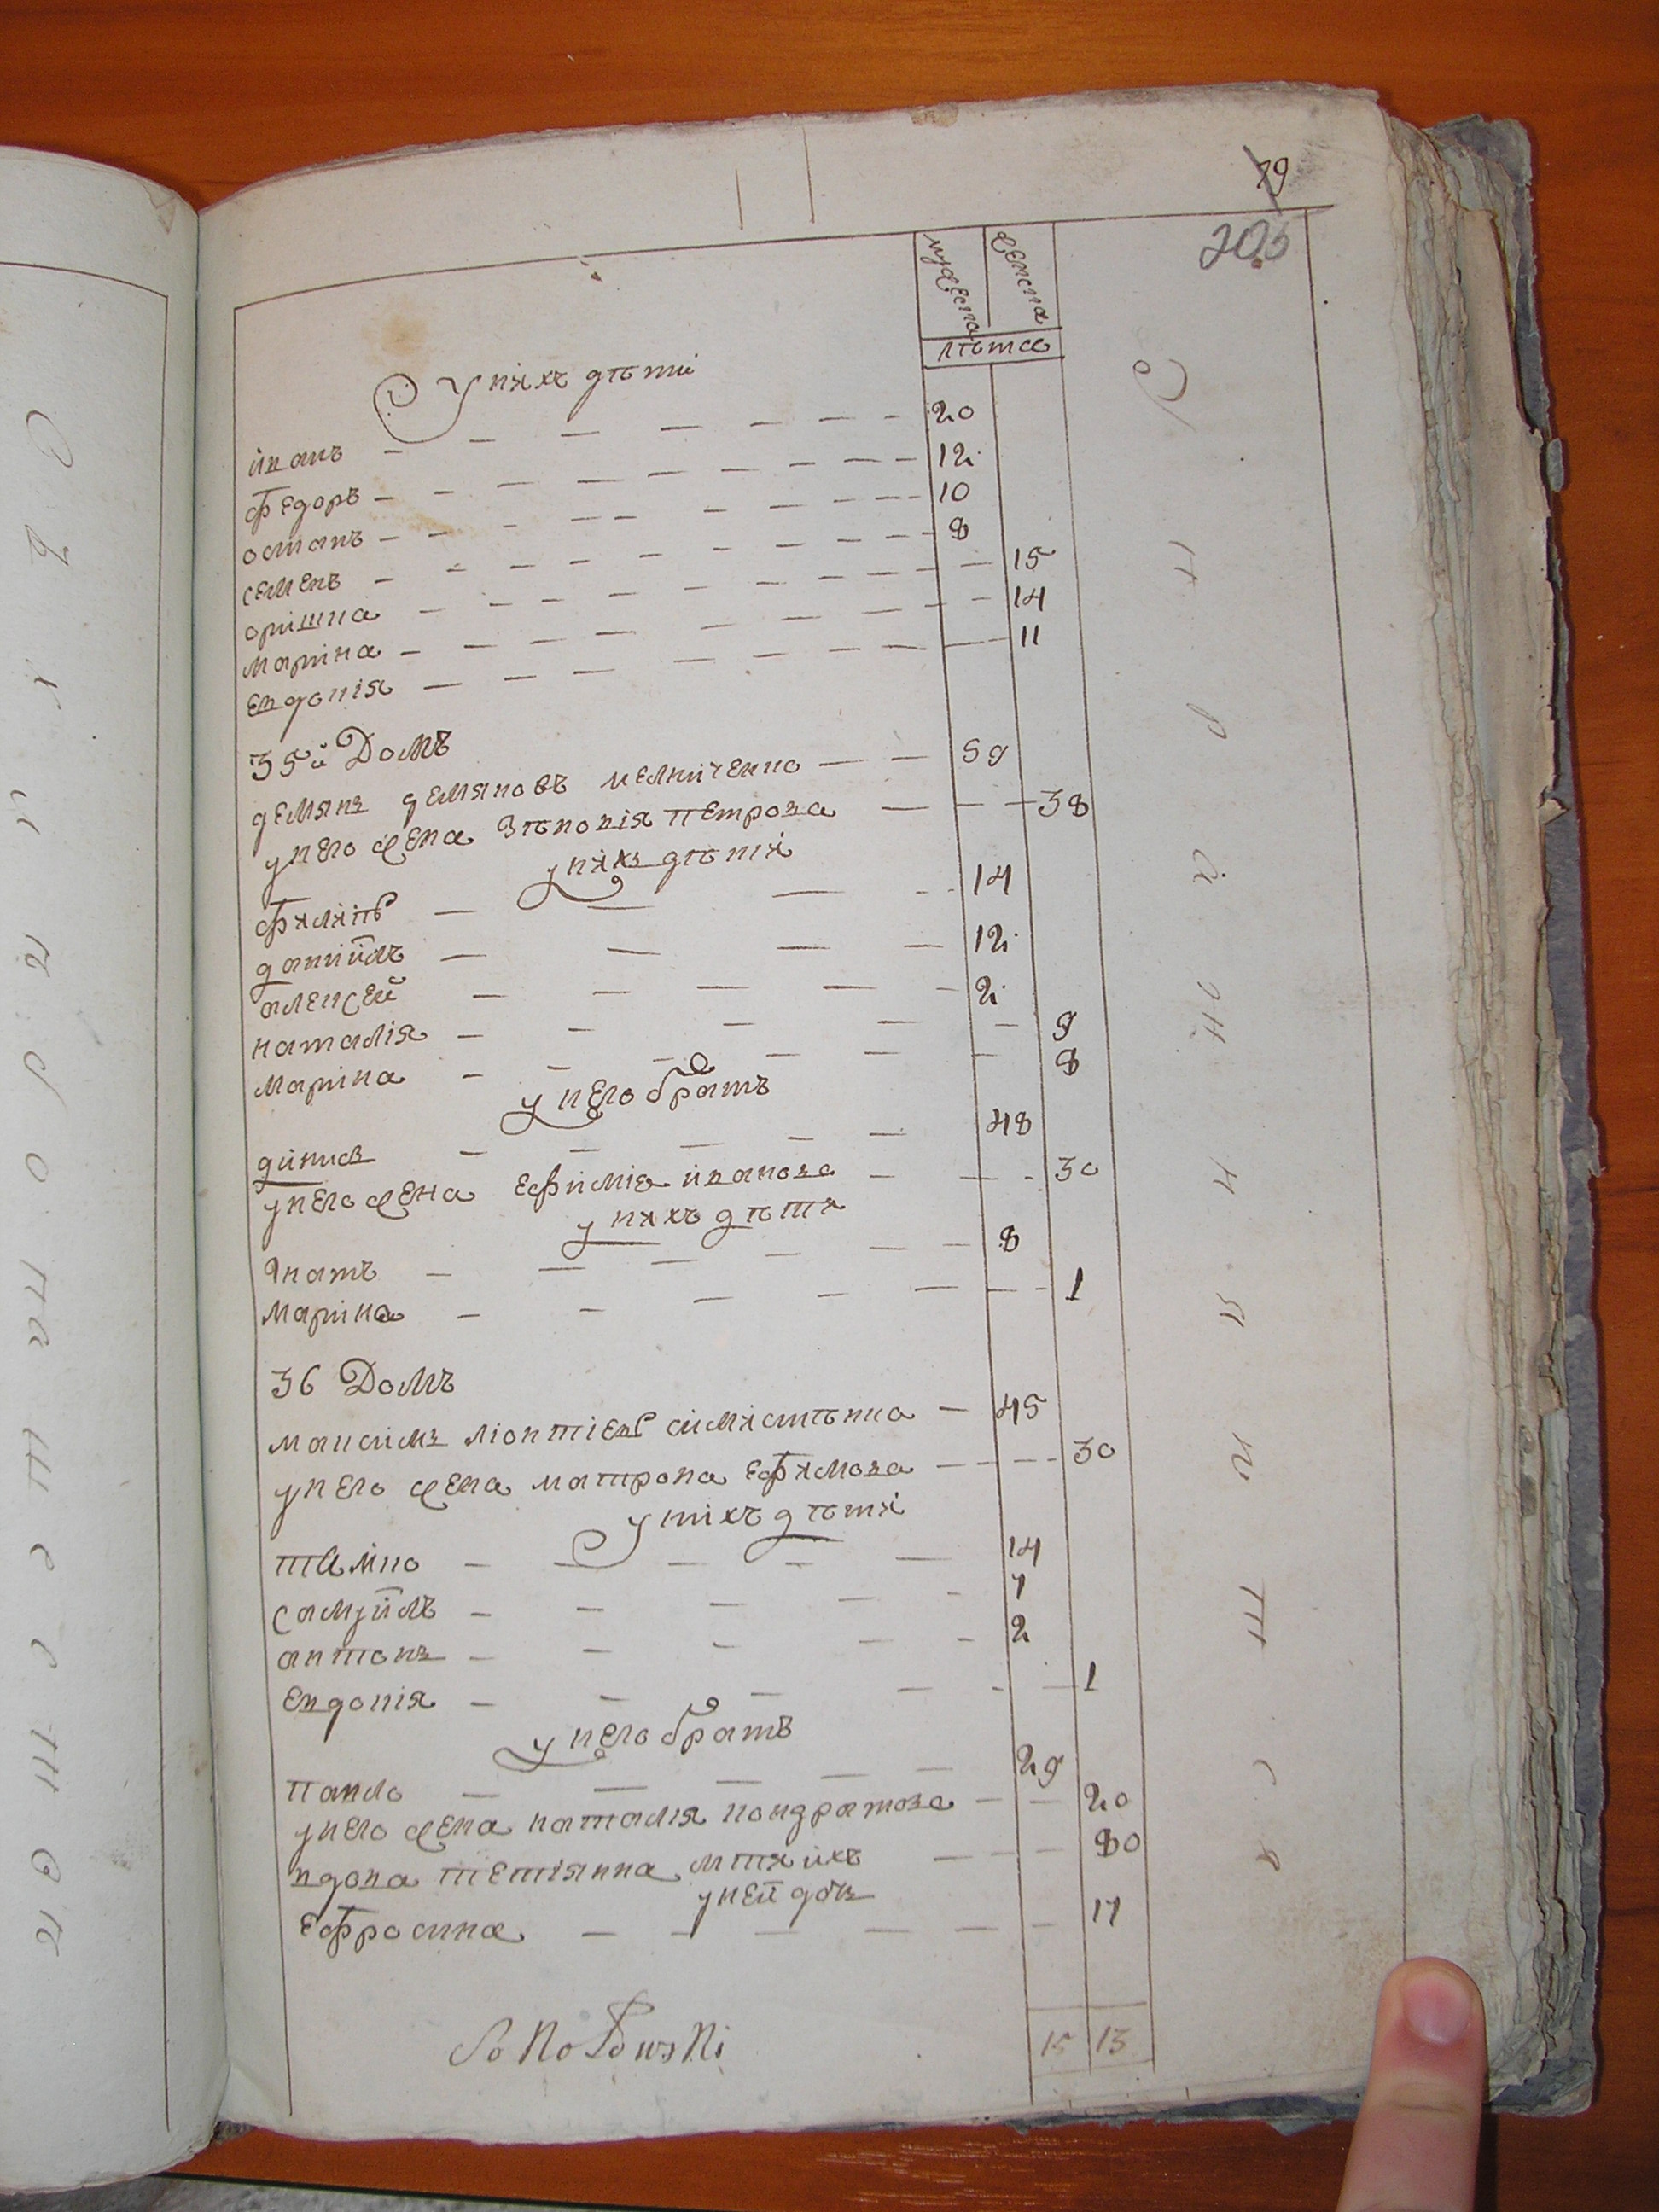 79
205
мужеска женска
лѣта
У нихъ дѣти
иванъ — 20
федоръ — 12
остапъ — 10
семенъ — 8
оришка — 15
марина — 14
евдокія — 11
35й Домъ
демянъ демяновъ мелниченко — 59
у него жена Зѣновія петрова — 38
у нихъ дѣти
филипъ — 14
даниилъ — 12
алексей — 2
наталія — 9
марина — 8
у него братъ
дінисъ — 48
у него жена ефимія иванова — 30
у нихъ дѣти
Гнатъ — 8
марина — 1
36 Домъ
максимъ ліонтіевъ — 45
у него жена матрона ефимова — 30
у нихъ дѣти
14
самуйлъ — 7
антонъ — 2
Евдокія — 1
у него братъ
павло — 29
у него жена наталія кондратова — 20
вдова тетіянна мти ихъ — 80
у ней дочь
ефросина — 17
15 13